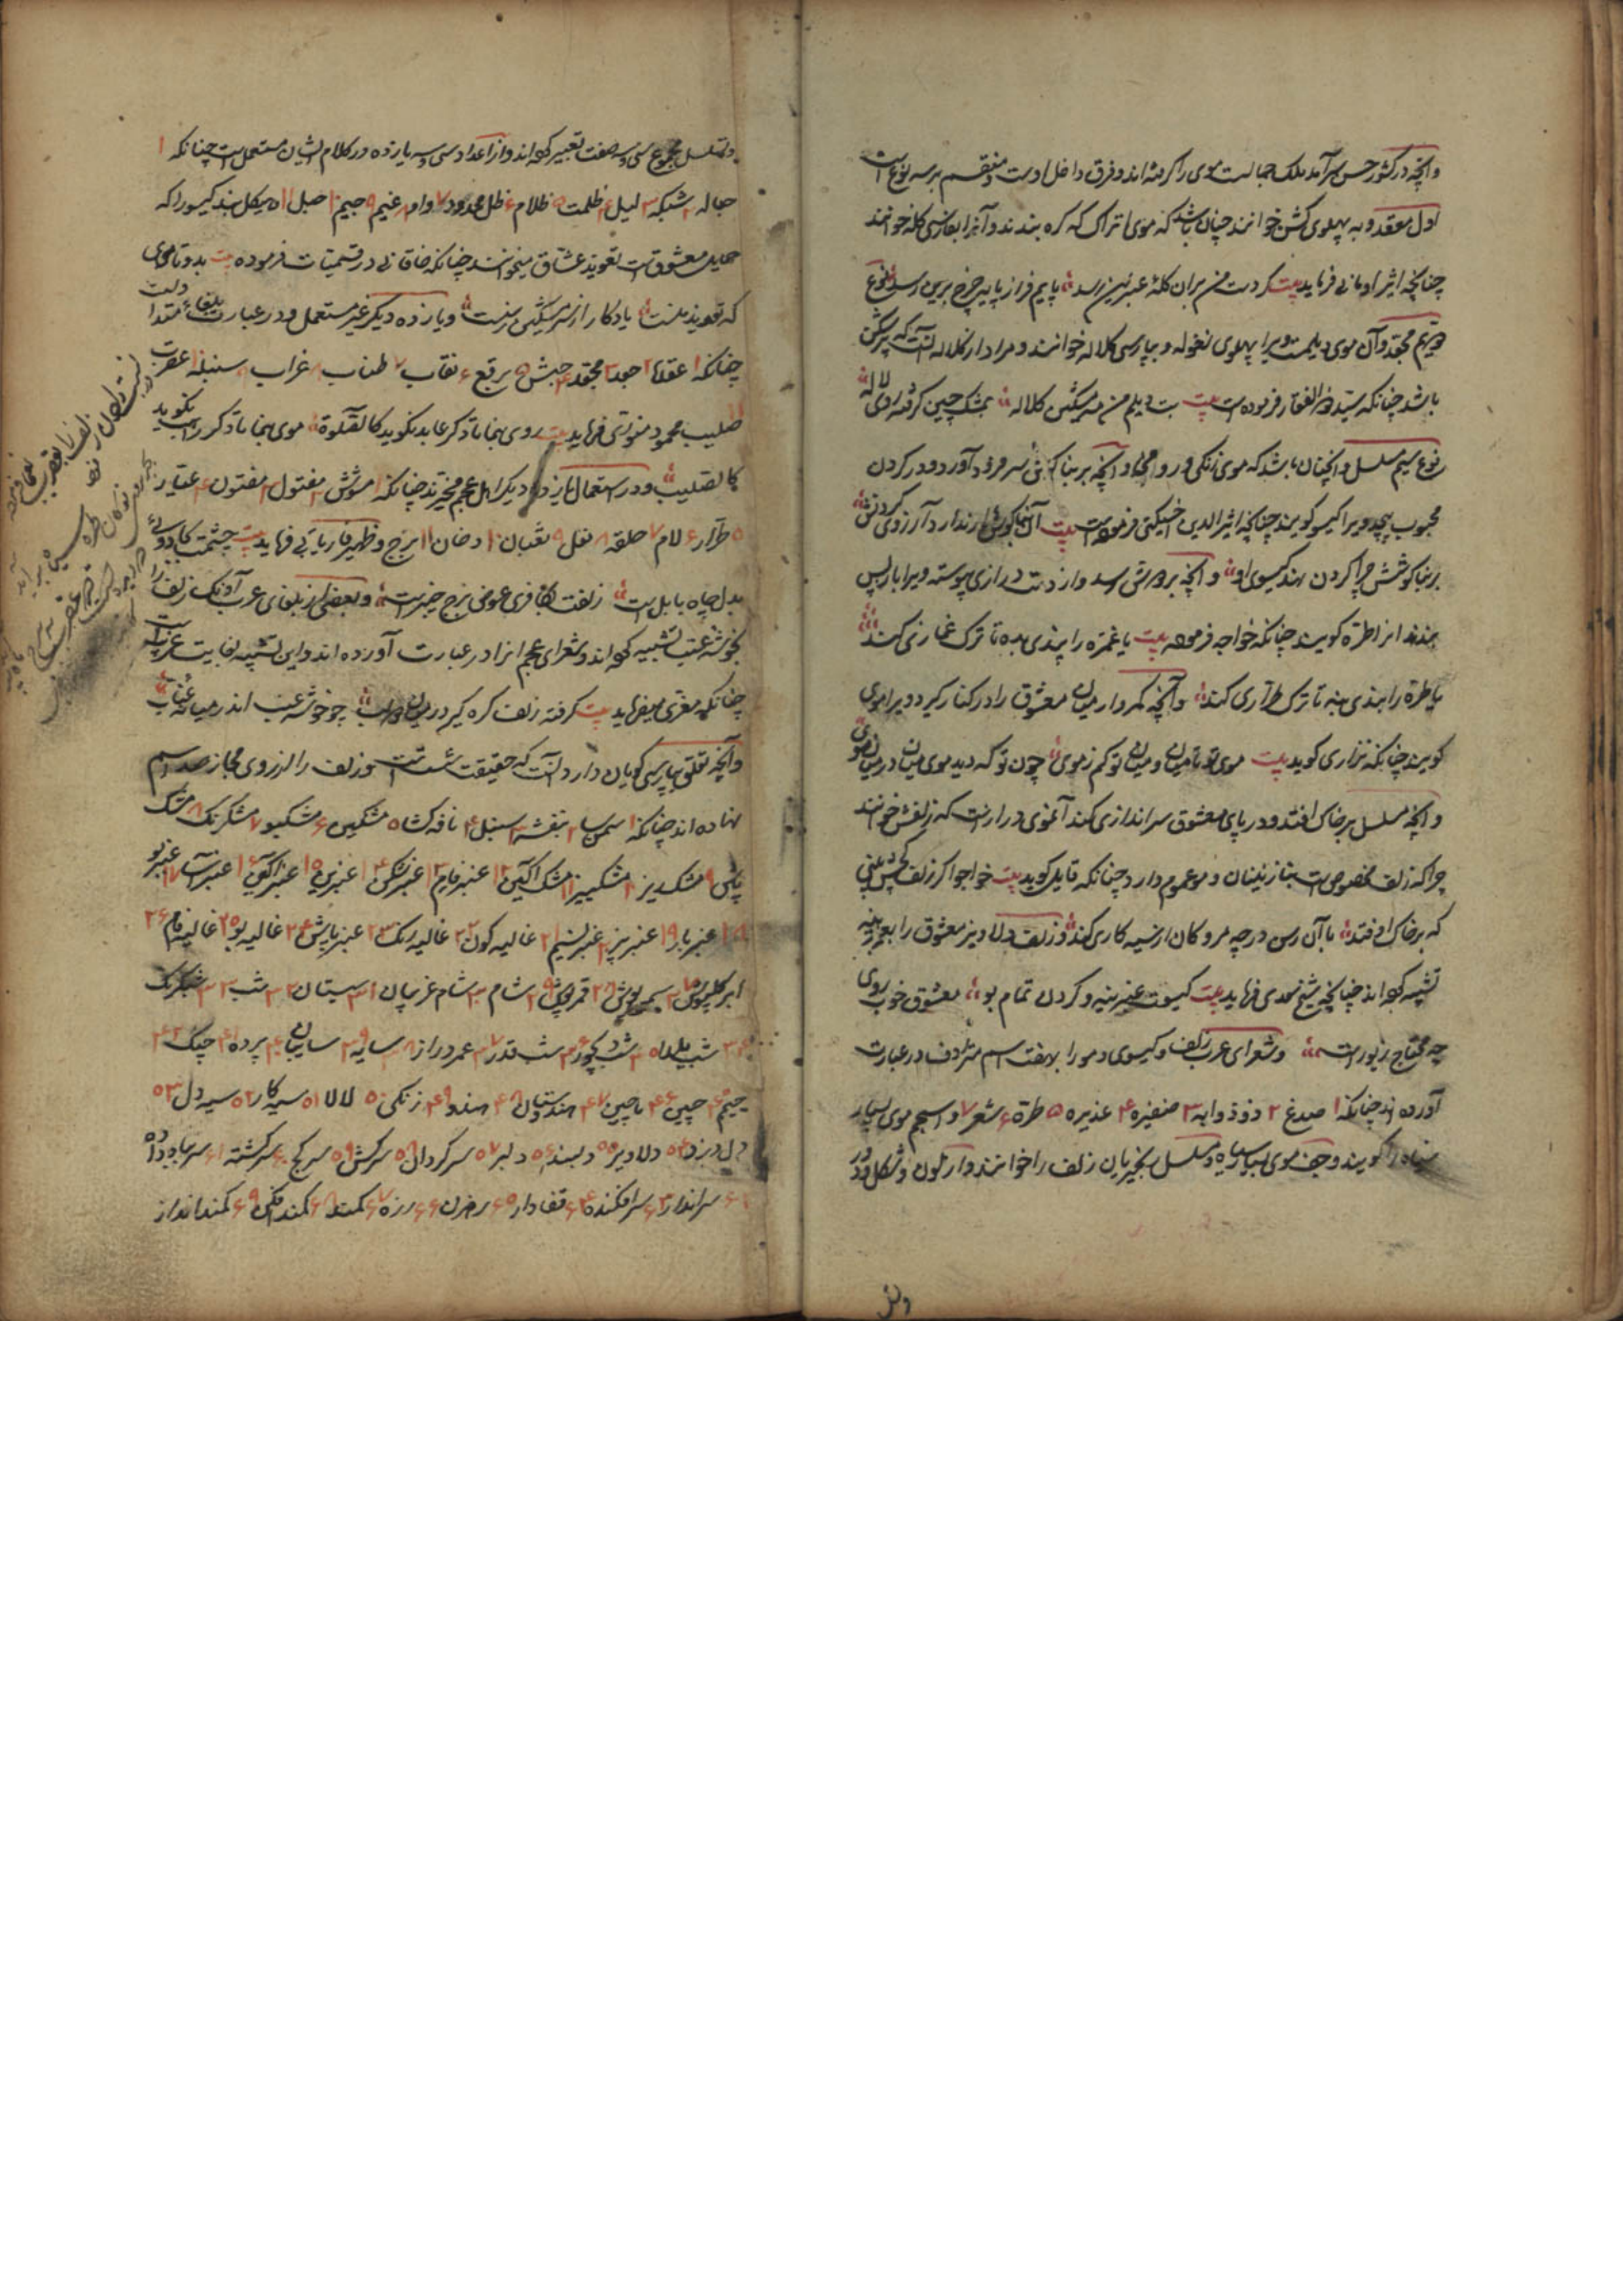 وانچه در کشور حسن سرآمد ملک جمالست موی را گرفته اند و فرق داخل اوست و منقسم بر سه نوع است
اول معقد و به پهلوی کشن خوانند چنان باشد که موی اتراک که گره بندند و آنرا بفارسی کله خوانند
چنانچه اثیر اومانی فرماید بیت گر دست من بران کلهٔ عنبرین رسد پایم فراز پایه چرخ برین رسد نوع
دویم مجعد و آن موی دیلمست ویرا پهلوی نغوله و بپارسی کلاله خوانند و مراد از کلاله آنست که پرشکن
باشد چنانکه سید ذوالفقار فرموده است بیت بت دیلم من مه مشکین کلاله بمشک چین گرفته روی لاله
نوع سیم مسلسل و آنچنان باشد که موی زنگی و روا مجاو آنچه بر بناگوش سر فرود آورد و در گردن
محبوب پیچد ویرا گیسو گویند چنانچه اثیرالدین اخسیکتی فرموده است بیت آن بناگوش ارندارد آرزوی گردنش
بر بناگوشش چرا گردن نهد گیسوی او و آنچه بر و دوش رسد و از دست درازی پیوسته ویرا باز پس
بندند انرا طره گویند چنانکه خواجه فرموده بیت یا غمزه را پندی بده تا ترک غمازی کند
یا طره را بندی بنه تا ترک طراری کند و آنچه کمروار میان معشوق را در کنار گیرد ویرا موی
گویند چنانکه نزاری گوید بیت موی تو تا میان و میان تو کم ز موی چون تو که دید موی میان در میان موی
و آنچه مسلسل بر خاک افتد و در پای معشوق سراندازی کند آنموی درازست که زلفش خوانند
چرا که زلف مخصوص است بنازنینان و مو عموم دارد چنانکه قایل گوید بیت خواجو اگر زلف کجش بینی
که بر خاک اوفتد با آن رسن در چه مرو کان از سیه کاری کند و زلف دلاویز معشوق را بعنبرینه
تشبیه کرده اند چنانچه شیخ سعدی فرماید بیت گیسوت عنبرینه و گردن تمام بود معشوق خوب روی
چه محتاج زیورست و شعرای عرب زلف و گیسوی و مو را بهفت اسم مترادف در عبارت
آورده اند چنانکه ۱ صدغ ۲ ذوذوابه ۳ ضفیره ۴ غدیره ۵ طره ۶ شعر ۷ و اسحم موی بسیار
سیاه را گویند و جعد موی بسیار سیاه و مسلسل بنجیریان زلف را خوانند و از تلون و شکل و دور
و تسلسل مجموع سی و سه صفت تعبیر کرده اند و از اعداد سی و سه یازده در کلام ایشان مستعمل است چنانکه ۱
حباله ۲ شبکه ۳ لیل ۴ ظلمت ۵ ظلام ۶ ظل ممدود ۷ وام ۸ غیم ۹ جیم ۱۰ حبل ۱۱ هیکل بند گیسو را که
حمایل معشوقست تعویذ عشاق میخوانند چنانکه خاقانی در قسمیات فرموده بیت بدو تا موی
که تعویذ منست یادگار از سر مشکین رسنت و یازده دیگر غیر مستعمل و در عبارت بلغاء متداولست
چنانکه ۱ عقد ۲ جعد ۳ مجعد ۴ حبش ۵ برقع ۶ نقاب ۷ طناب ۸ غراب ۹ سنبله ۱۰ عقرب
۱۱ صلیب محمود منوری فرماید بیت روی بنما تا دگر عابد نگوید کالصلوة موی بنما تا دگر راهب نگوید
کالصلیب و در استعمال یازده دیگر اهل عجم مخیرند چنانکه ۱ مشوش ۲ مفتول ۳ مفتون ۴ عیار
۵ طرار ۶ لام ۷ حلقه ۸ نعل ۹ ثعبان ۱۰ دخان ۱۱ برج و ظهیر فاریابی فرماید بیت چشمت بجادوئی
بدل چاه بابل است زلفت بکافری عوض برج خیبرست و بعضی از بلغای عرب آونگ زلف را
بخوشه عنب تشبیه کرده اند و شعرای عجم انرا در عبارت آورده اند و این تشبیه بغایت غریب است
چنانکه معزی میفرماید بیت گرفته زلف گره گیر در میان دو لب چو خوشه عنب اندر میانه عناب
و آنچه تعلق بپارسی گویان دارد آنست که حقیقت شست است و زلف را از روی مجاز صد اسم
نهاده اند چنانکه ۱ سمن سا ۲ بنفشه ۳ سنبل ۴ نافه گشا ۵ مشکین ۶ مشکبو ۷ مشک رنگ ۸ مشک
پاش ۹ مشک ریز ۱۰ مشک بیز ۱۱ مشک آگین ۱۲ عنبر فام ۱۳ عنبر شکن ۱۴ عنبرین ۱۵ عنبر آگین ۱۶ عنبر آسا ۱۷ عنبر بو
۱۸ عنبر بار ۱۹ عنبر بیز ۲۰ عنبر نسیم ۲۱ غالیه گون ۲۲ غالیه رنگ ۲۳ عنبر پاش ۲۴ غالیه بو ۲۵ غالیه فام ۲۶
ابر گلپوش ۲۷ سمن پوش ۲۸ قمر پوش ۲۹ شام ۳۰ شام غریبان ۳۱ شبستان ۳۲ شب ۳۳ شبرنگ
۳۴ شب یلدا ۳۵ شب دیجور ۳۶ شب قدر ۳۷ عمر دراز ۳۸ سایه ۳۹ سایبان ۴۰ پرده ۴۱ چنگ ۴۲
جیم ۴۵ چین ۴۶ ماچین ۴۷ هندوستان ۴۸ هندو ۴۹ زنگی ۵۰ لالا ۵۱ سیه کار ۵۲ سیه دل ۵۳
دل دزد ۵۴ دلاویز ۵۵ دلبند ۵۶ دلبر ۵۷ سرگردان ۵۸ سرکش ۵۹ سرکج ۶۰ سرگشته ۶۱ سر بباد داده
۶۲ سرانداز ۶۳ سرافکنده ۶۴ قفادار ۶۵ رهزن ۶۶ زره ۶۷ کمند ۶۸ کمند افکن ۶۹ کمند انداز